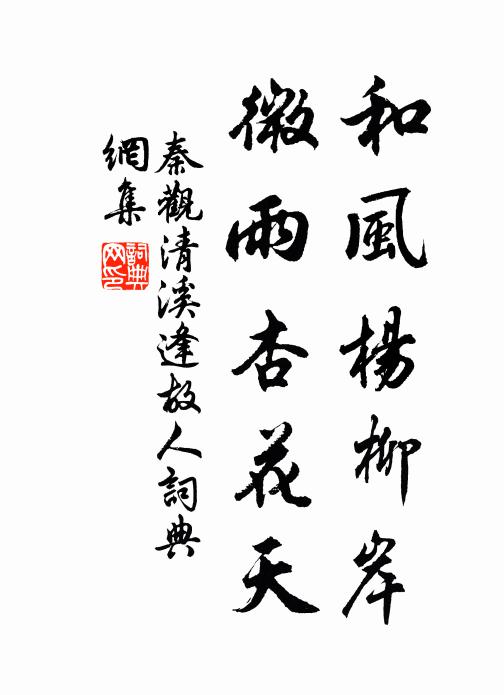 和風楊柳岸
微雨杏花天
秦觀清溪逢故人詞典
網集
詞典
网印